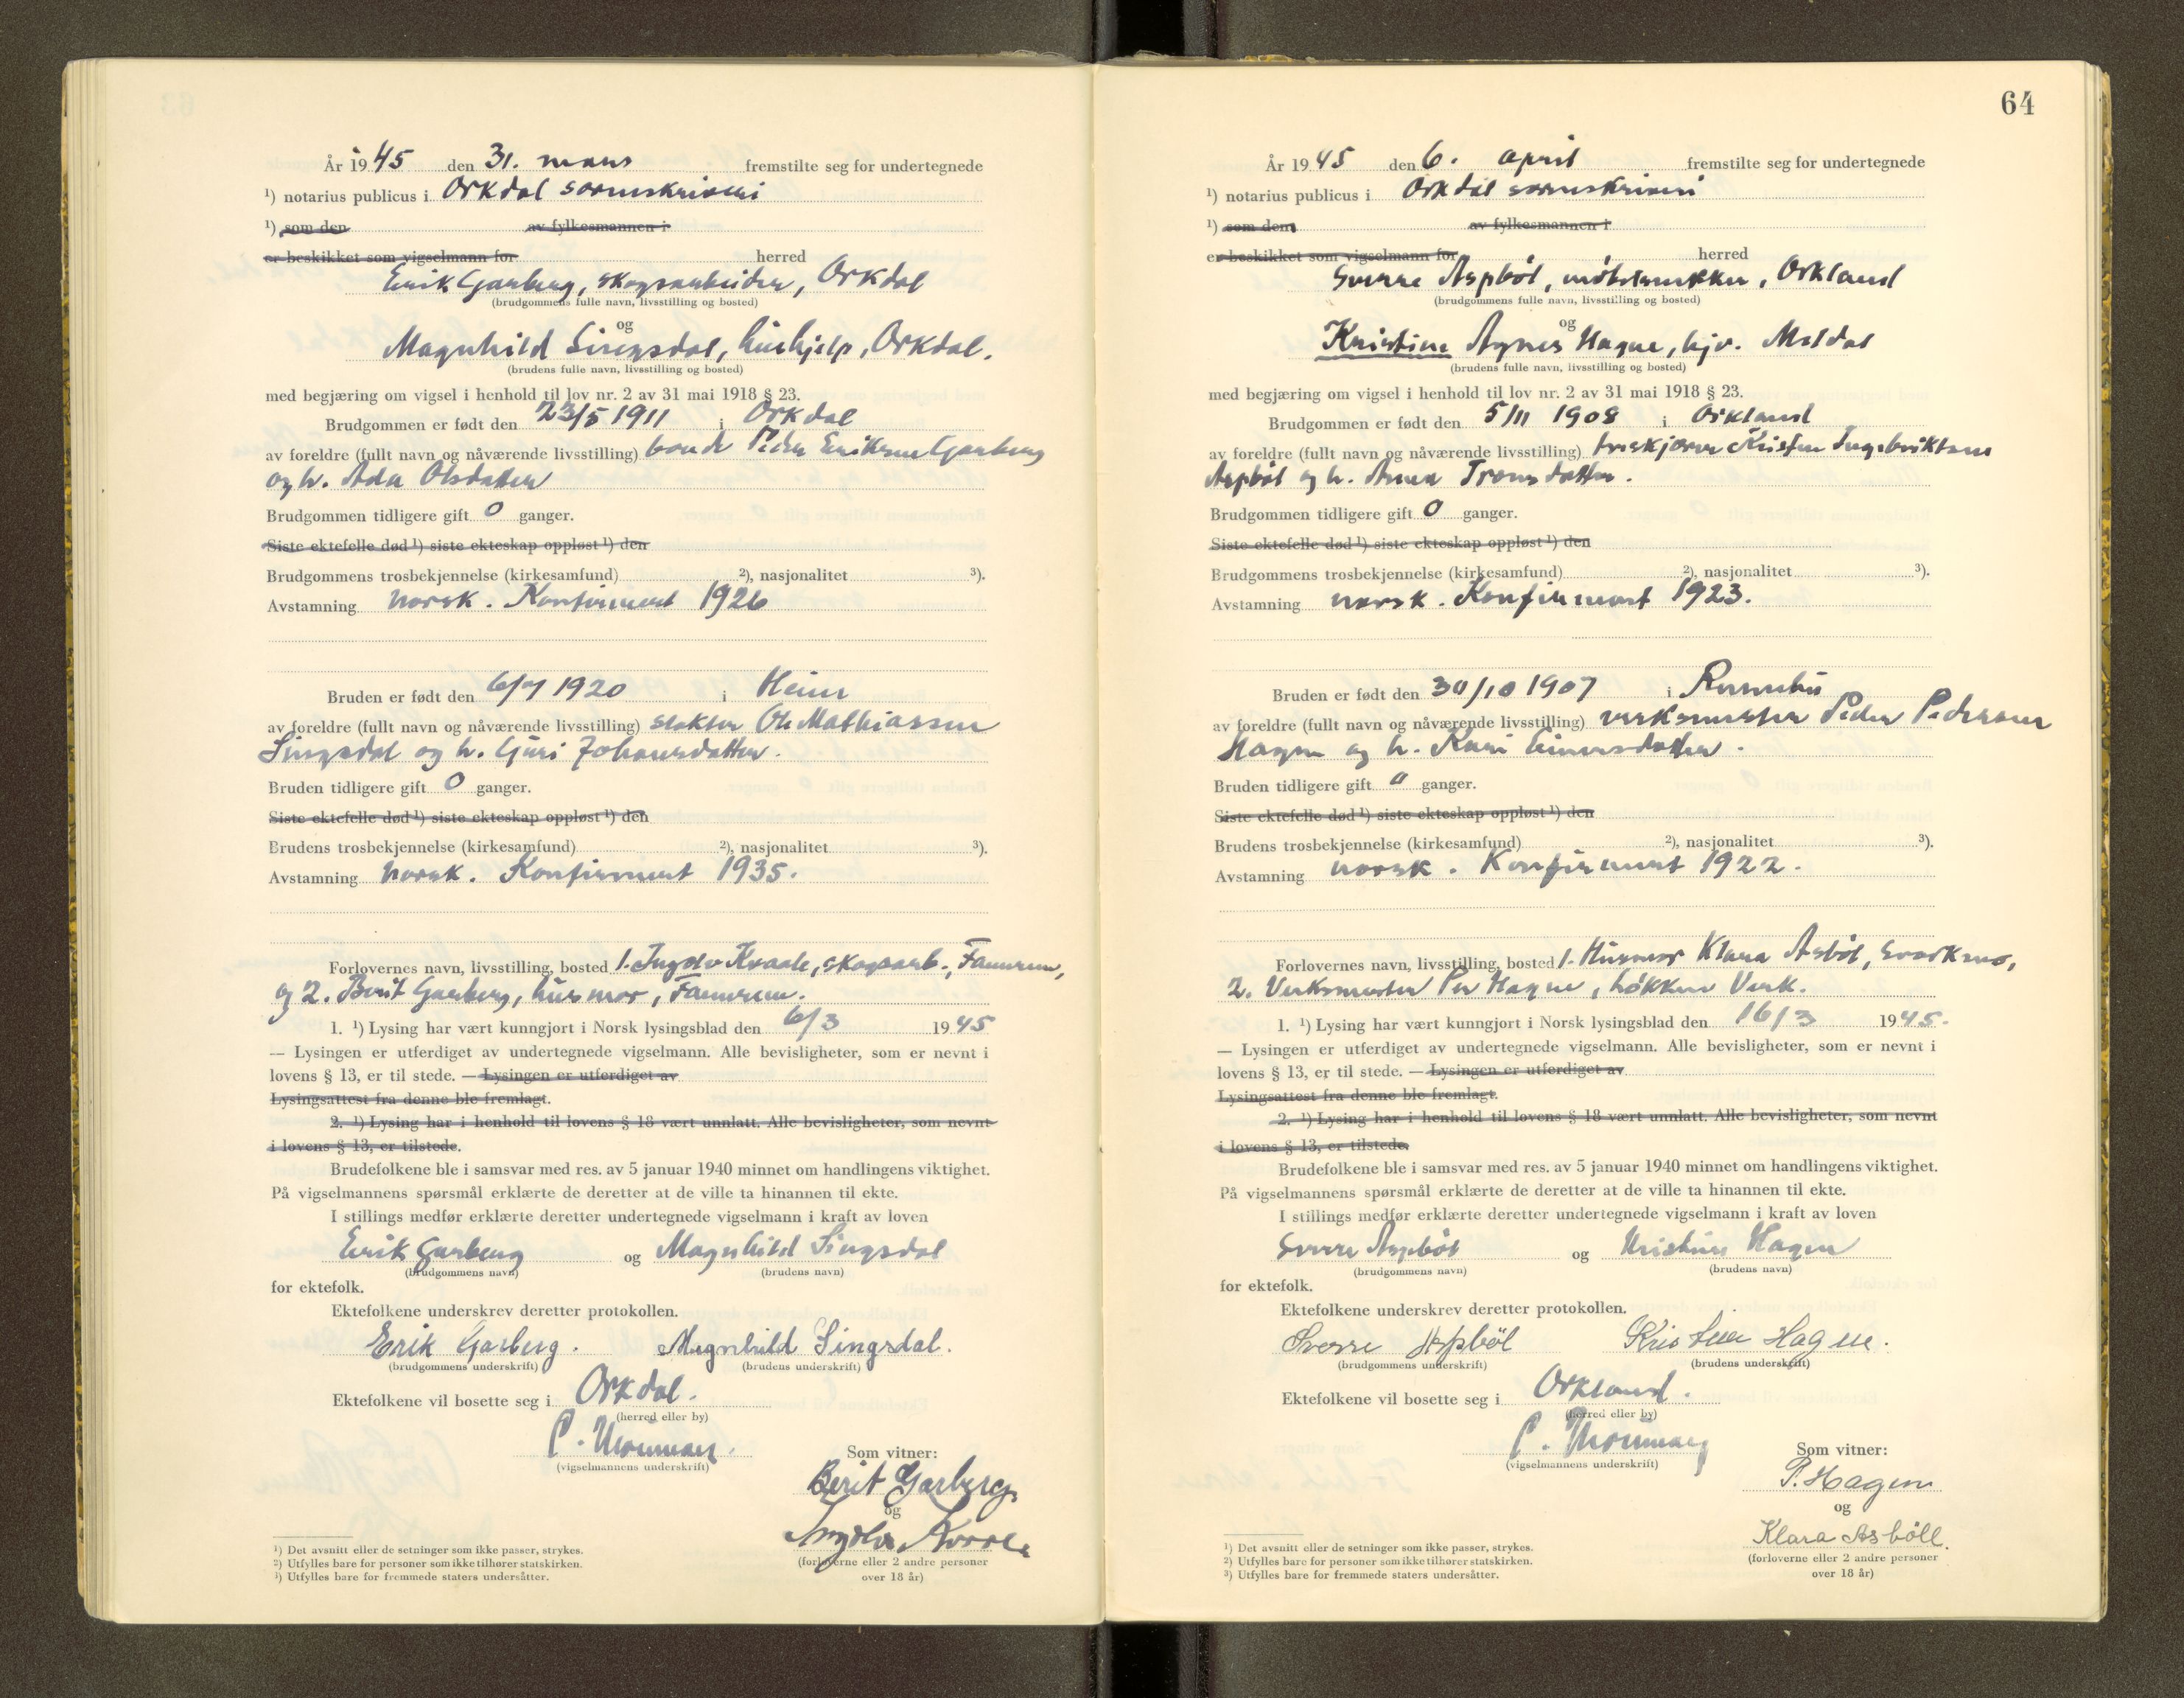 År 1945 den 31. mars fremstilte seg for undertegnede
¹) notarius publicus i Orkdal sorenskriveri
¹) som den av fylkesmannen i
er beskikket som vigselmann for herred
Erik Garberg, skogsarbeider, Orkdal
(brudgommens fulle navn, livsstilling og bosted)
og
Magnhild Singsdal, hushjelp, Orkdal.
(brudens fulle navn, livsstilling og bosted)
med begjæring om vigsel i henhold til lov nr. 2 av 31 mai 1918 § 23.
Brudgommen er født den 23/5 1911 i Orkdal
av foreldre (fullt navn og nåværende livsstilling) bonde Peder Eriksen Garberg
og h. Ada Olsdatter
Brudgommen tidligere gift 0 ganger.
Siste ektefelle død ¹) siste ekteskap oppløst ¹) den
Brudgommens trosbekjennelse (kirkesamfund) ²), nasjonalitet ³).
Avstamning norsk. Konfirmert 1926
Bruden er født den 6/7 1920 i Heim
av foreldre (fullt navn og nåværende livsstilling) slakter Ole Mathiassen
Singsdal og h. Guri Johansdatter.
Bruden tidligere gift 0 ganger.
Siste ektefelle død ¹) siste ekteskap oppløst ¹) den
Brudens trosbekjennelse (kirkesamfund) ²), nasjonalitet ³).
Avstamning Norsk. Konfirmert 1935.
Forlovernes navn, livsstilling, bosted 1. Ingolv skogsarb., Fannrem,
og 2. Berit Garberg, husmor, Fannrem.
1. ¹) Lysing har vært kunngjort i Norsk lysingsblad den 6/3 1945
— Lysingen er utferdiget av undertegnede vigselmann. Alle bevisligheter, som er nevnt i
lovens § 13, er til stede. — Lysingen er utferdiget av
Lysingsattest fra denne ble fremlagt.
2. ¹) Lysing har i henhold til lovens § 18 vært unnlatt. Alle bevisligheter, som nevnt
i lovens § 13, er tilstede.
Brudefolkene ble i samsvar med res. av 5 januar 1940 minnet om handlingens viktighet.
På vigselmannens spørsmål erklærte de deretter at de ville ta hinannen til ekte.
I stillings medfør erklærte deretter undertegnede vigselmann i kraft av loven
Erik Garberg og Magnhild Singsdal
(brudgommens navn) (brudens navn)
for ektefolk.
Ektefolkene underskrev deretter protokollen.
Erik Garberg. Magnhild Singsdal.
(brudgommens underskrift) (brudens underskrift)
Ektefolkene vil bosette seg i Orkdal.
(herred eller by)
(vigselmannens underskrift)
Som vitner:
Berit Garberg
og
(forloverne eller 2 andre personer
over 18 år)
¹) Det avsnitt eller de setninger som ikke passer, strykes.
²) Utfylles bare for personer som ikke tilhører statskirken.
³) Utfylles bare for fremmede staters undersåtter.
64
År 1945 den 6. april fremstilte seg for undertegnede
¹) notarius publicus i Orkdal sorenskriveri
¹) som den av fylkesmannen i
er beskikket som vigselmann for herred
Sverre Aspbøl, møbelsnekker, Orkland
(brudgommens fulle navn, livsstilling og bosted)
og
Kristine Agnes Hagen, hjv. Meldal
(brudens fulle navn, livsstilling og bosted)
med begjæring om vigsel i henhold til lov nr. 2 av 31 mai 1918 § 23.
Brudgommen er født den 5/11 1908 i Orkland
av foreldre (fullt navn og nåværende livsstilling) Kristen Ingebriktsen
Aspbøl og h. Anna
Brudgommen tidligere gift 0 ganger.
Siste ektefelle død ¹) siste ekteskap oppløst ¹) den
Brudgommens trosbekjennelse (kirkesamfund) ²), nasjonalitet ³).
Avstamning norsk. Konfirmert 1923.
Bruden er født den 30/10 1907 i
av foreldre (fullt navn og nåværende livsstilling) verksmester Peder Pedersen
Hagen og h. Kari Einarsdatter.
Bruden tidligere gift 0 ganger.
Siste ektefelle død ¹) siste ekteskap oppløst ¹) den
Brudens trosbekjennelse (kirkesamfund) ²), nasjonalitet ³).
Avstamning norsk. Konfirmert 1922.
Forlovernes navn, livsstilling, bosted 1. Husmor Klara Asbøl, Svorkmo,
2. Verksmester Per Hagen, Løkken Verk.
1. ¹) Lysing har vært kunngjort i Norsk lysingsblad den 16/3 1945.
— Lysingen er utferdiget av undertegnede vigselmann. Alle bevisligheter, som er nevnt i
lovens § 13, er til stede. — Lysingen er utferdiget av
Lysingsattest fra denne ble fremlagt.
2. ¹) Lysing har i henhold til lovens § 18 vært unnlatt. Alle bevisligheter, som nevnt
i lovens § 13, er tilstede.
Brudefolkene ble i samsvar med res. av 5 januar 1940 minnet om handlingens viktighet.
På vigselmannens spørsmål erklærte de deretter at de ville ta hinannen til ekte.
I stillings medfør erklærte deretter undertegnede vigselmann i kraft av loven
Sverre Aspbøl og Kristine Hagen
(brudgommens navn) (brudens navn)
for ektefolk.
Ektefolkene underskrev deretter protokollen.
Sverre Aspböl Kristine Hagen.
(brudgommens underskrift) (brudens underskrift)
Ektefolkene vil bosette seg i Orkland.
(herred eller by)
(vigselmannens underskrift)
Som vitner:
P. Hagen
og
Klara Asböll.
(forloverne eller 2 andre personer
over 18 år)
¹) Det avsnitt eller de setninger som ikke passer, strykes.
²) Utfylles bare for personer som ikke tilhører statskirken.
³) Utfylles bare for fremmede staters undersåtter.